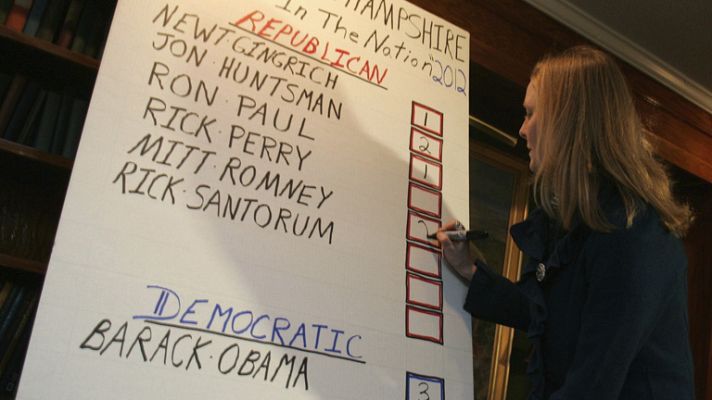 HAMPSHIRE
In The Nation" 2012
REPUBLICAN
NEWT·GINGRICH 1
JON·HUNTSMAN 2
RON·PAUL 1
RICK·PERRY
MITT·ROMNEY 2
RICK·SANTORUM
DEMOCRATIC
BARACK·OBAMA 3